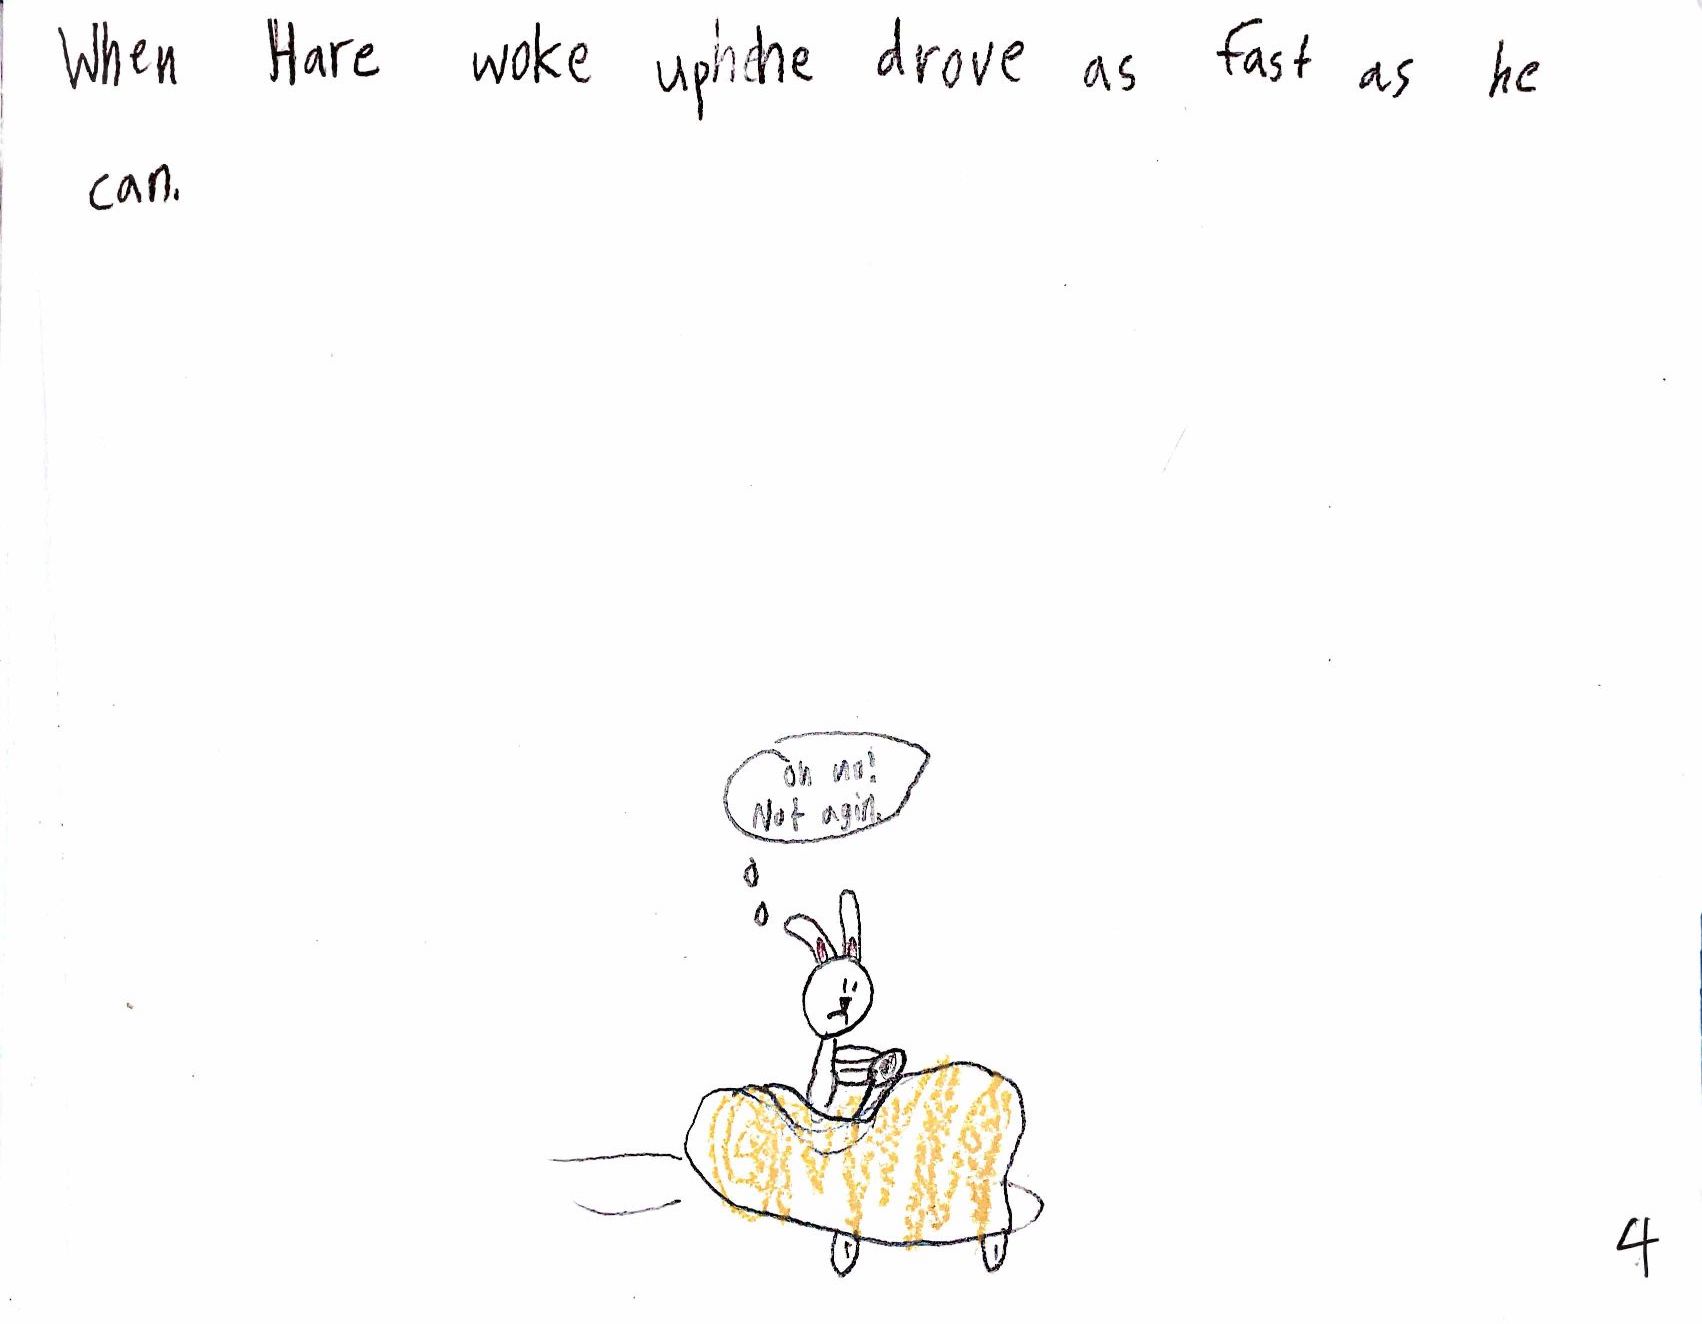 When Hare woke up he drove as fast as he
can.
Oh no!
Not agin.
4